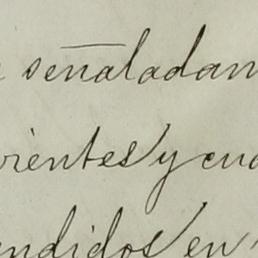 señaladam
rientes y cua
endidos en